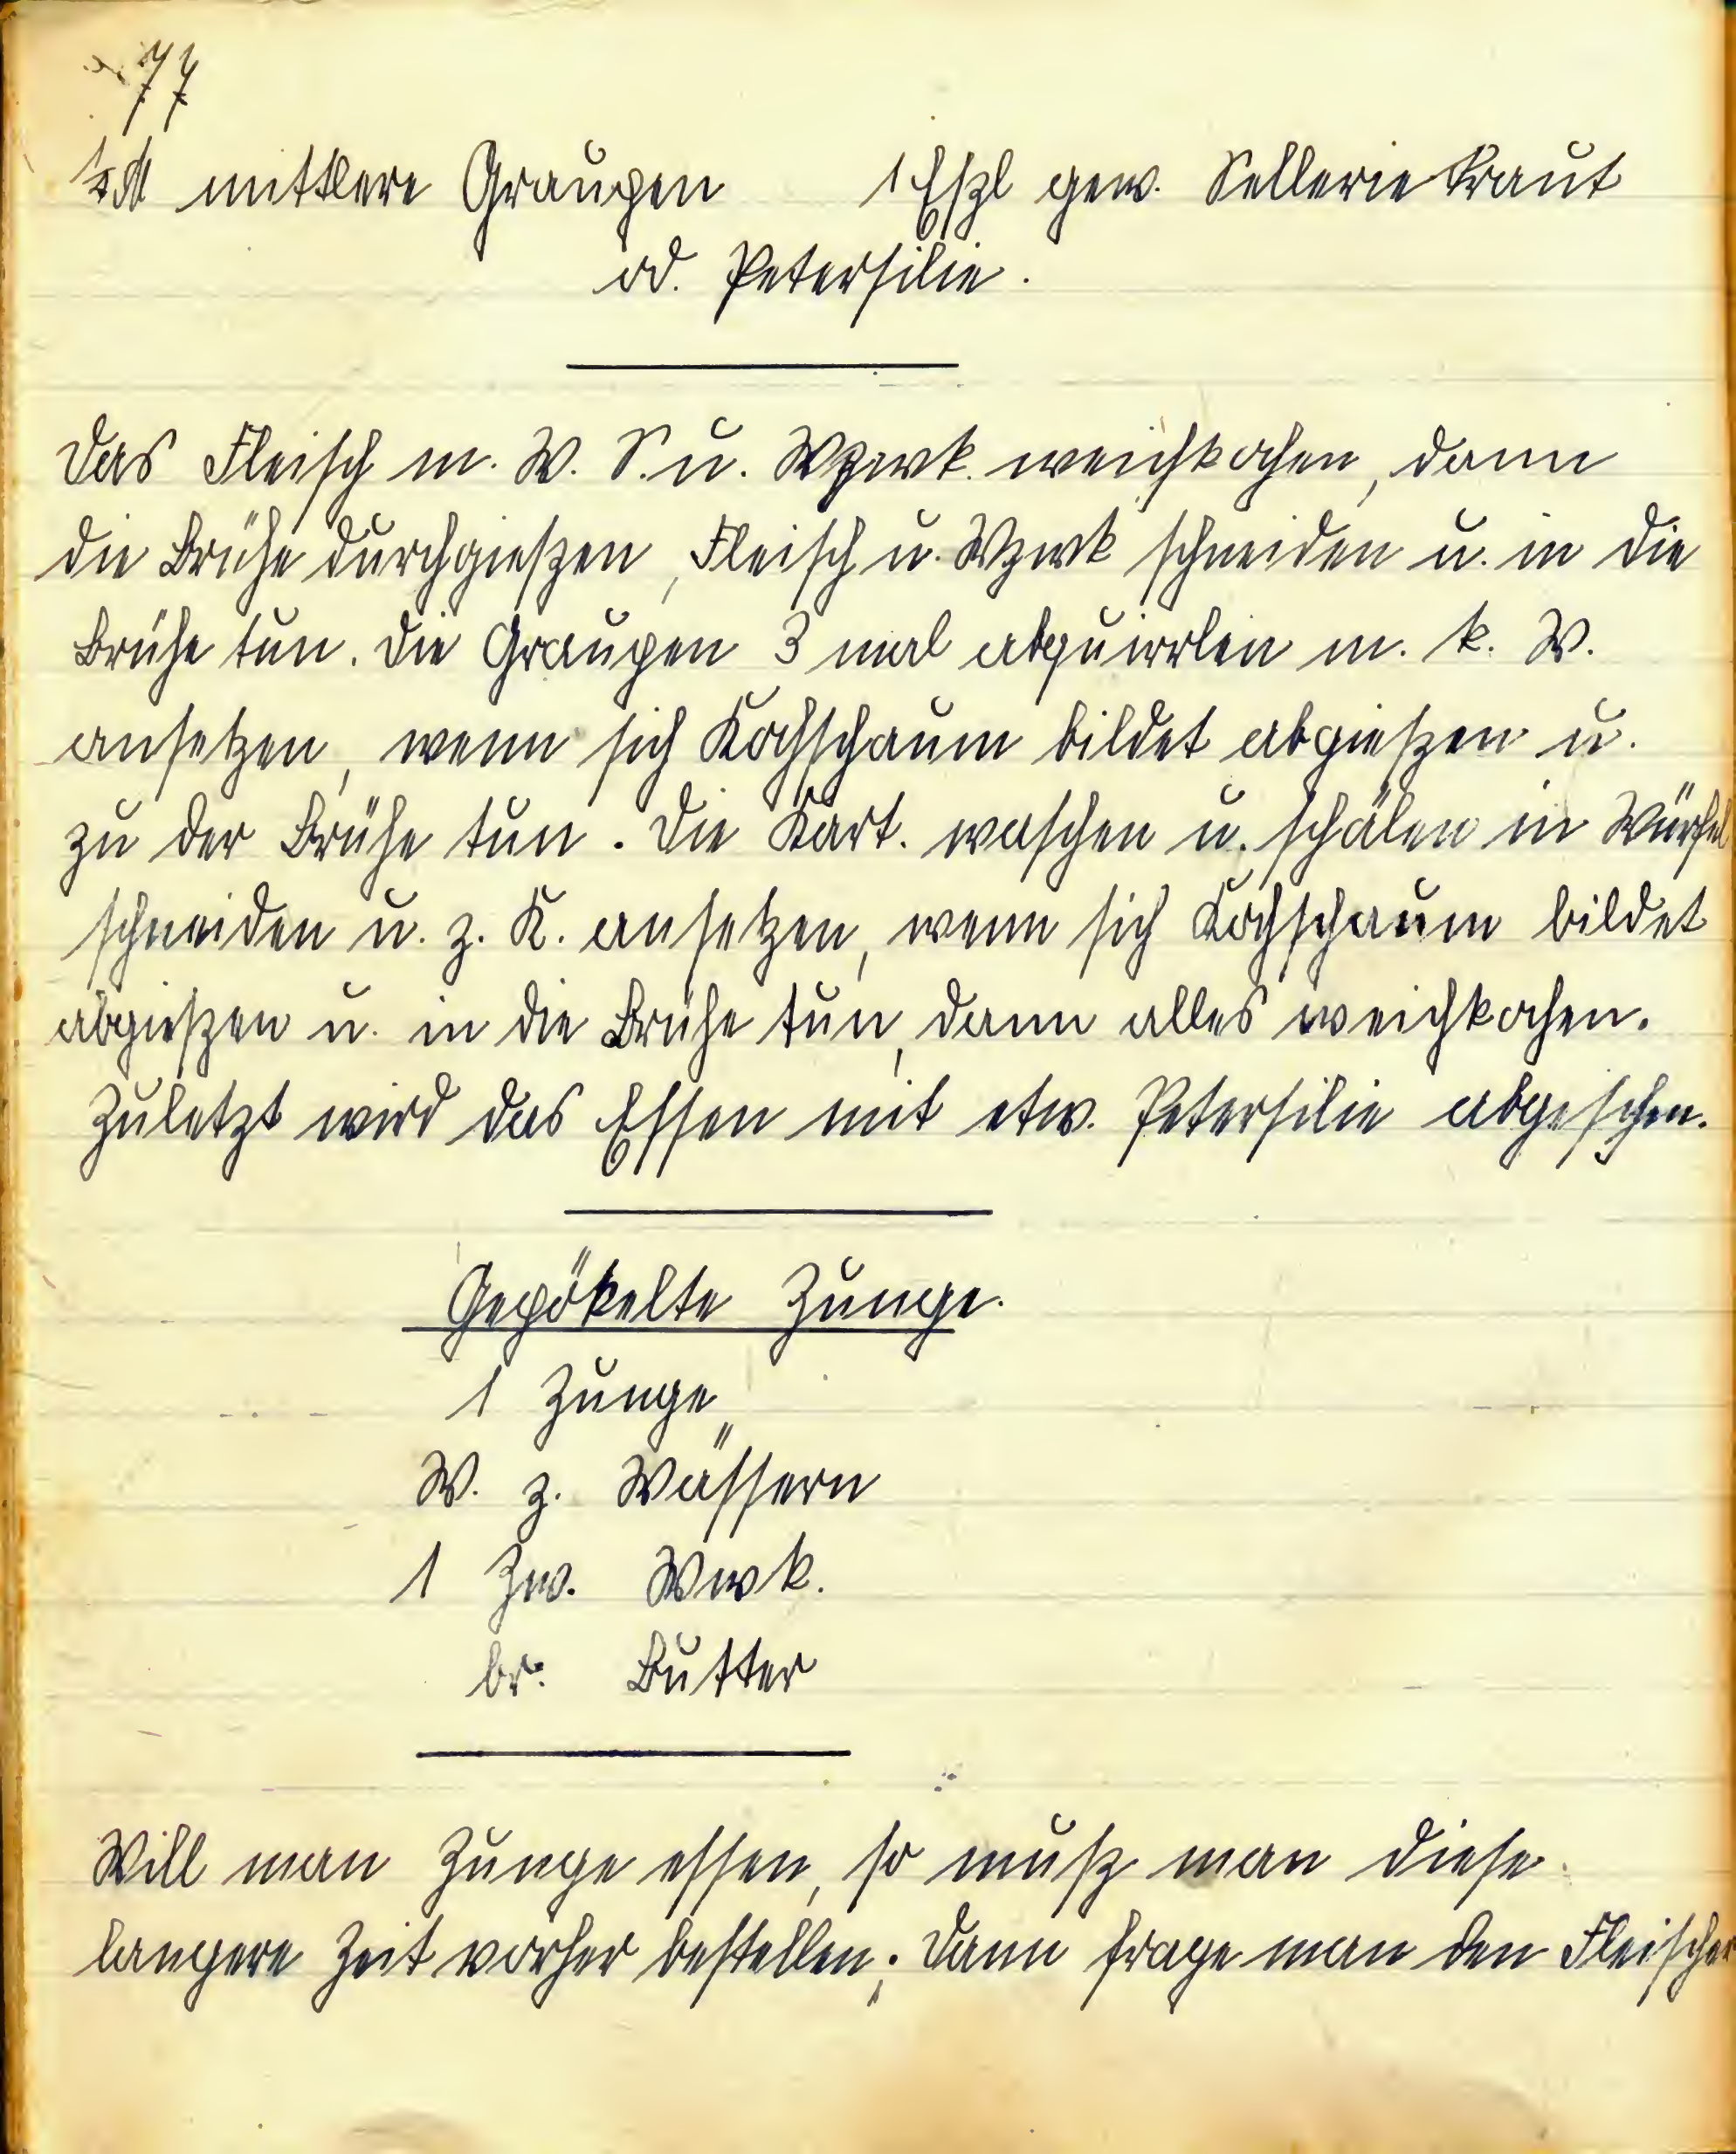 77
½ ℔ mittlere Graupen 1 Eßl gew. Sellerie Kraut
od. Petersilie.
Das Fleisch m. W. S. u. Wzwk. weichkochen, dann
die Brühe durchgießen, Fleisch u. Wzwk schneiden u. in die
Brühe tun. Die Graupen 3 mal abquirrlen m. k. W.
ansetzen, wenn sich Kochschaum bildet abgießen u.
zu der Brühe tun. Die Kart. waschen u. schälen in Würfel
schneiden u. z. K. ansetzen, wenn sich Kochschaum bildet
abgießen u. in die Brühe tun, dann alles weichkochen.
Zuletzt wird das Essen mit etw. Petersilie abgeschm.
Gepökelte Zunge.
1 Zunge
W. z. Wässern
1 Zw. Wwk.
br. Butter
Will man Zunge essen, so muß man diese
langere Zeit vorher bestellen; dann frage man den Fleischer